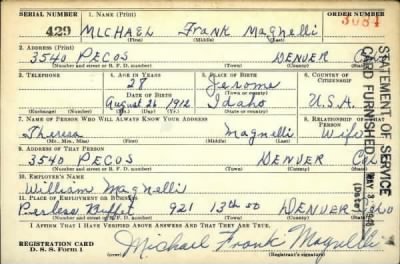 SERIAL NUMBER 1. NAME (Print) ORDER NUMBER
429 MICHAEL Frank Magnelli 3084
(First) (Middle) (Last)
2. ADDRESS (Print)
3540 PECOS DENVER Col
(Number and street or R. F. D. number) (Town) (County) (State)
3. TELEPHONE 4. AGE IN YEARS 5. PLACE OF BIRTH 6. COUNTRY OF CITIZENSHIP
27 Jerome
DATE OF BIRTH (Town or county)
August 26 1912 Idaho U.S.A.
(Exchange) (Number) (Mo.) (Day) (Yr.) (State or country)
7. NAME OF PERSON WHO WILL ALWAYS KNOW YOUR ADDRESS 8. RELATIONSHIP OF THAT PERSON
Theresa Magnelli Wife
(Mr., Mrs., Miss) (First) (Middle) (Last)
9. ADDRESS OF THAT PERSON
3540 PECOS DENVER Col
(Number and street or R. F. D. number) (Town) (County) (State)
10. EMPLOYER'S NAME
William Magnelli
11. PLACE OF EMPLOYMENT OR BUSINESS
Peerless Buffet 921 13th DENVER Colo
(Number and street or R. F. D. number) (Town) (County) (State)
I AFFIRM THAT I HAVE VERIFIED ABOVE ANSWERS AND THAT THEY ARE TRUE.
REGISTRATION CARD
D. S. S. FORM 1
Michael Frank Magnelli
(Registrant's signature)
STATEMENT OF SERVICE
CARD FURNISHED
(Date)